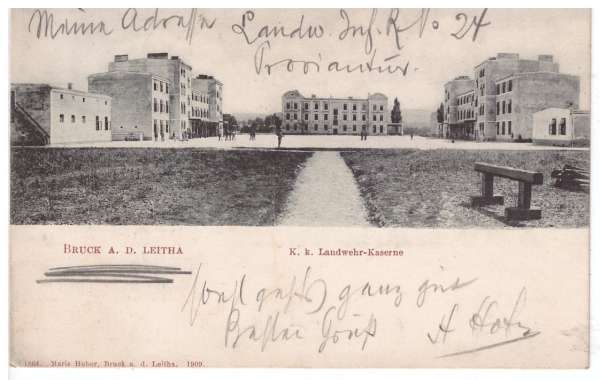 Meine Adresse Landw. Inf. R No 24
Proviantur.
BRUCK A. D. LEITHA
K. k. Landwehr-Kaserne
sonst geht's ganz gut
Bester Gruß A Hotz
1864. Marie Huber, Bruck a. d. Leitha. 1909.